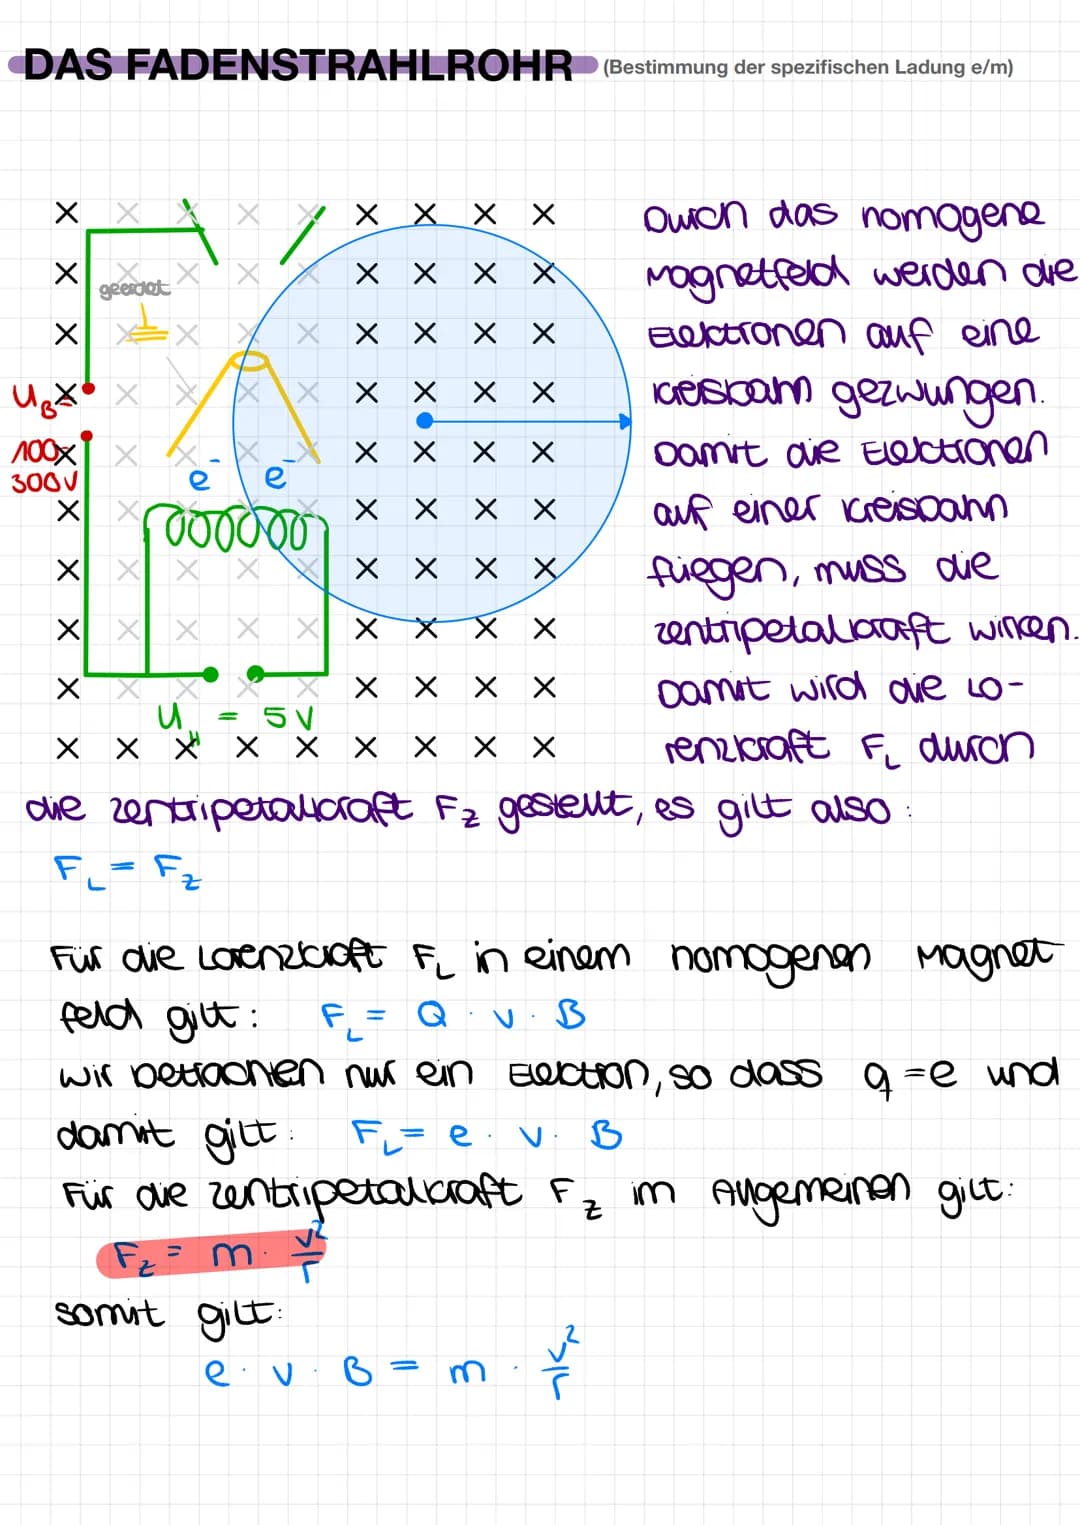 DAS FADENSTRAHLROHR (Bestimmung der spezifischen Ladung e/m)
Durch das homogene
Magnetfeld werden die
Elektronen auf eine
Kreisbahn gezwungen.
Damit die Elektronen
auf einer Kreisbahn
fliegen, muss die
Zentripetalkraft wirken.
Damit wird die Lo-
renzkraft F_L durch
die Zentripetalkraft F_Z gestellt, es gilt also :
geerdet
U_B=
100-
300V
e⁻ e⁻
U_H = 5 V
F_L = F_Z
Für die Lorenzkraft F_L in einem homogenen Magnet
feld gilt: F_L = Q · v · B
Wir betrachen nur ein Elektron, so dass q = e und
damit gilt: F_L = e · v · B
Für die Zentripetalkraft F_Z im Allgemeinen gilt:
F_Z = m · v²/r
somit gilt:
e · v · B = m · v²/r